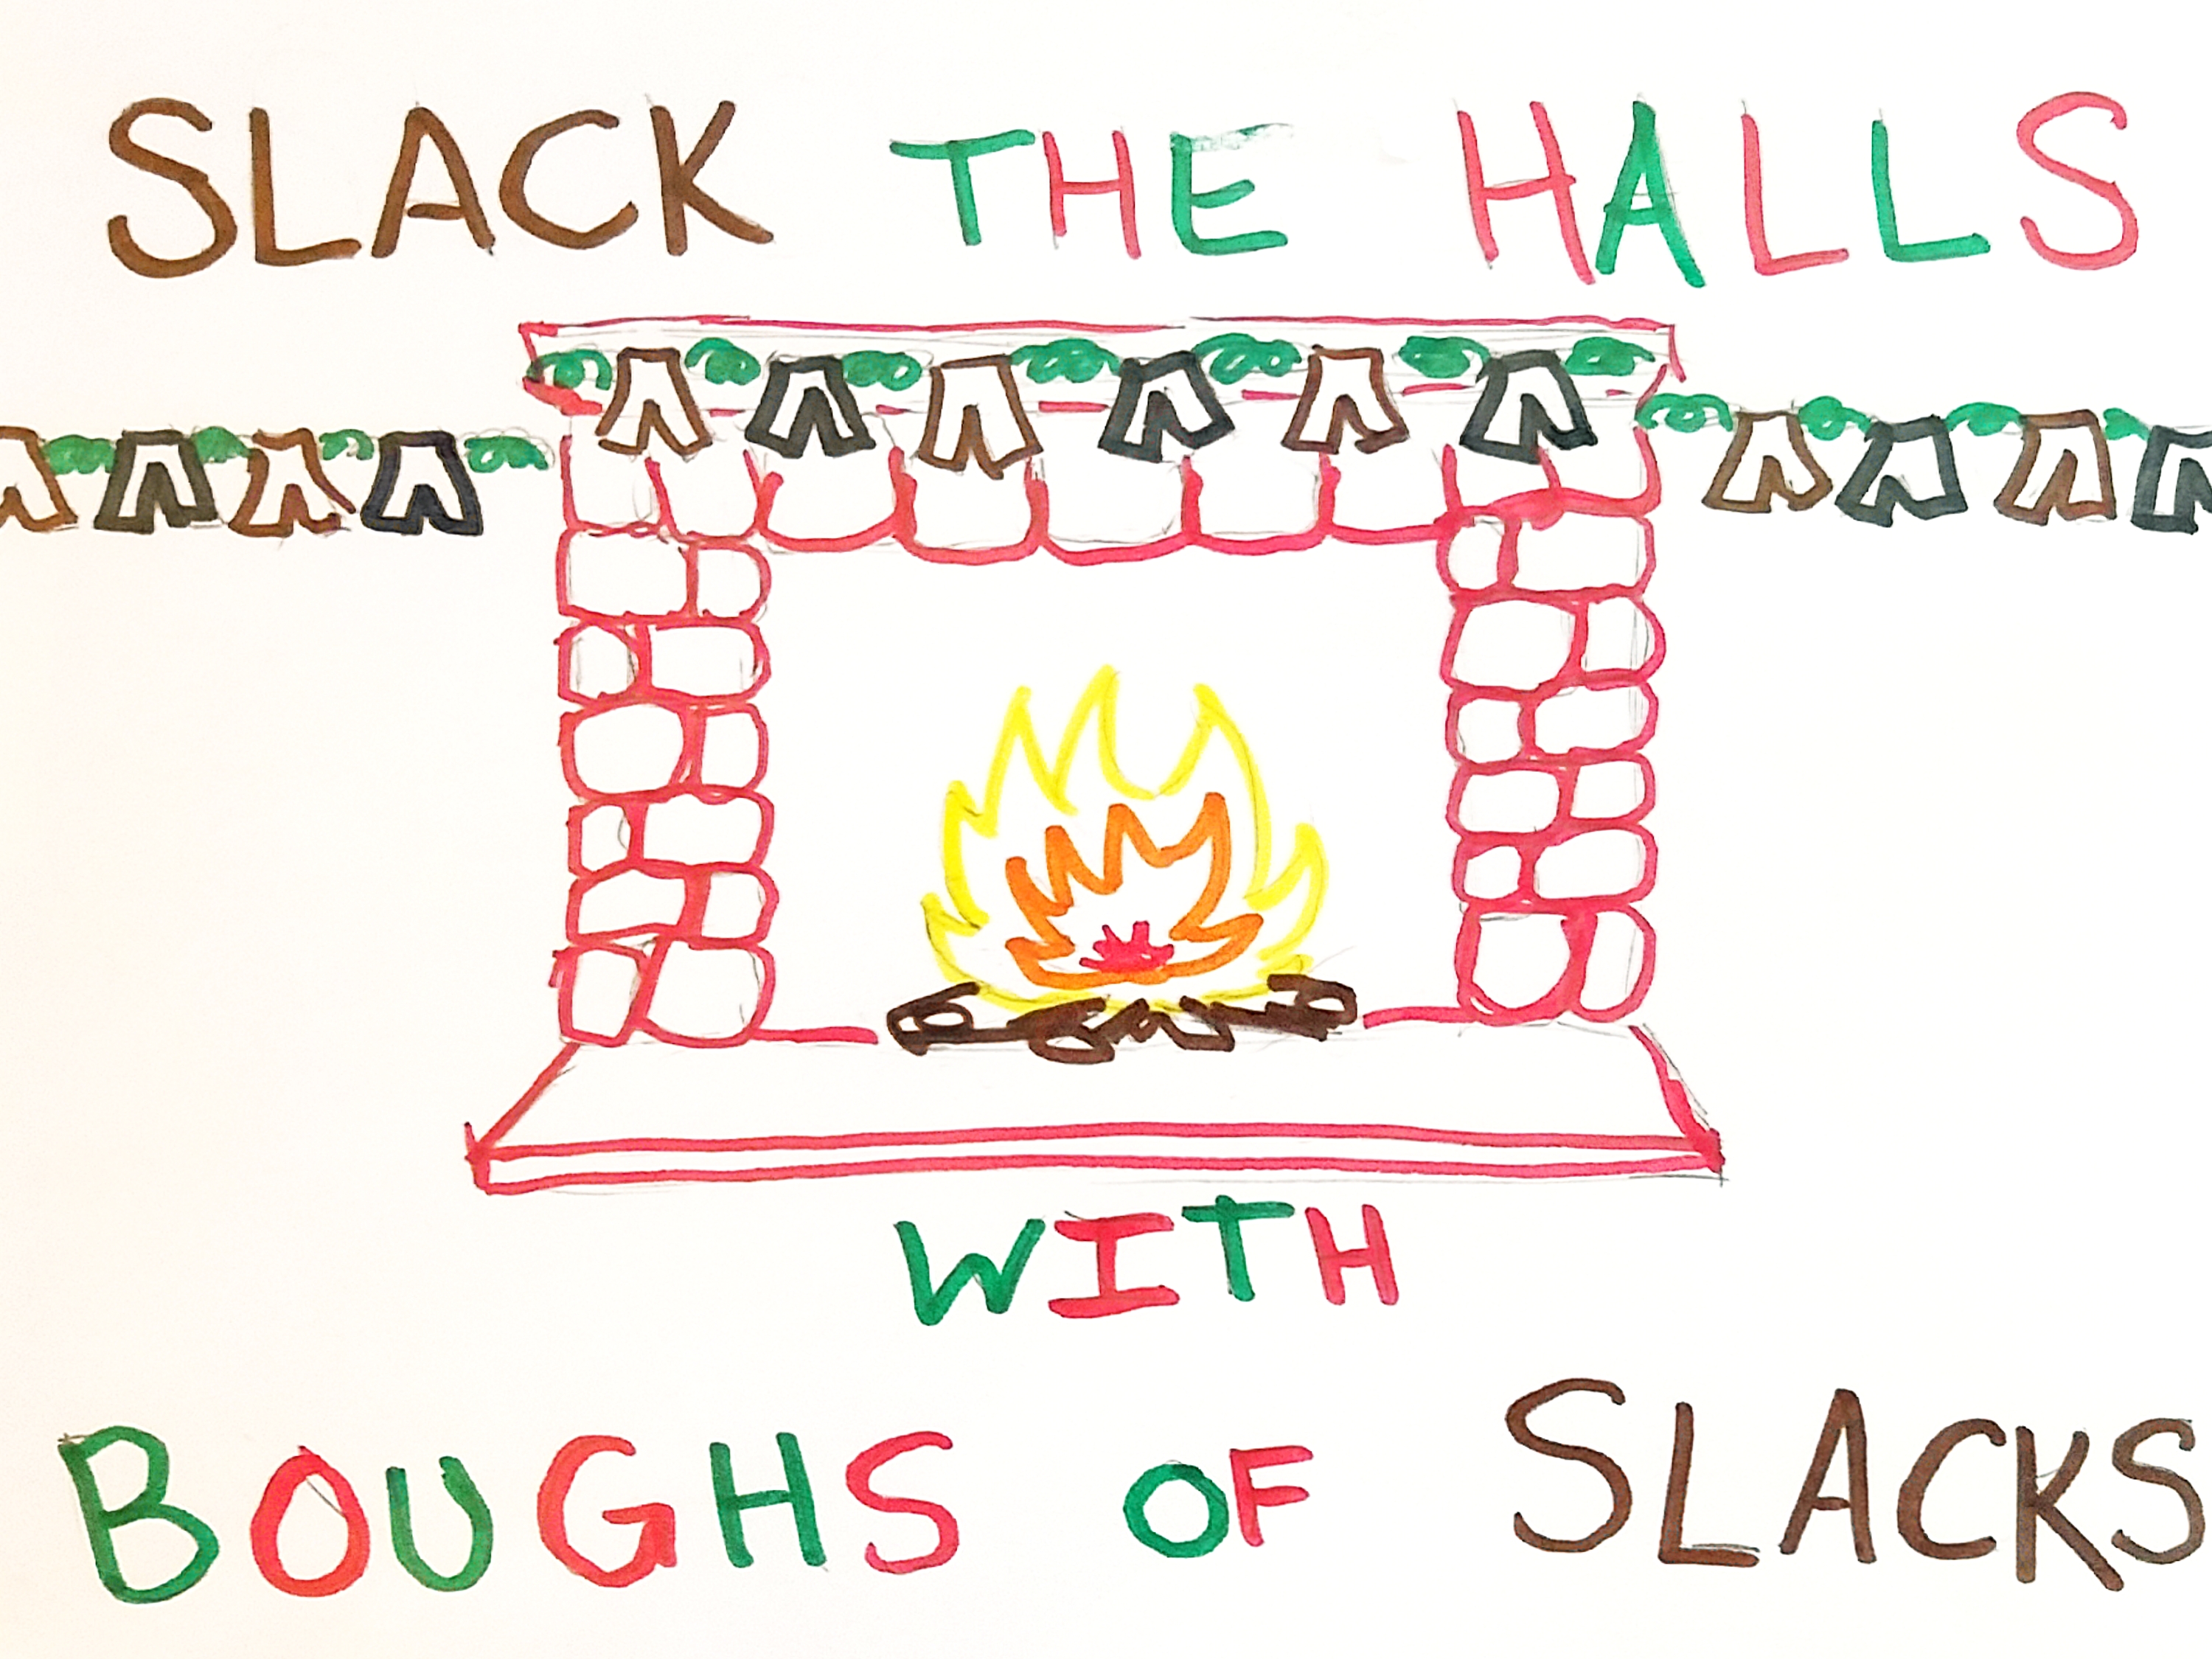 SLACK THE HALLS
WITH
BOUGHS OF SLACKS